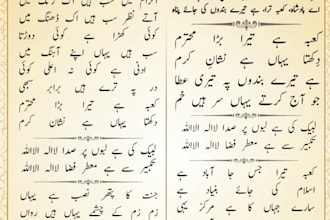 اے پادشاہ، کعبہ ترا، ہے تیرے بندوں کی جائے پناہ
کعبہ ہے تیرا بڑا محترم
دِکھتا یہاں ہے نشانِ کرم
ہے تیرے بندوں پہ تیری عطا
جو آج کرتے یہاں سر ہیں خم
لبیک کی ہے لبوں پر صدا لاالہ الااللہ
تکبیر سے ہے معطر فضا لاالہ الااللہ
کعبہ تیرا جس جا ہے
اسلام کی جائے بنیاد ہے
سارے جہاں کا ہے مرکز یہی
سب ہیں اک رنگ میں
آتے نظر سب ہیں اک ڈھنگ میں
کوئی کھڑا ہے کوئی دوڑتا
سب ہیں یہاں اپنے آہنگ میں
ادنی ہے کوئی نہ اعلی کوئی
در پہ ترے ہیں برابر سبھی
کعبہ ہے تیرا بڑا محترم
دِکھتا یہاں ہے نشانِ کرم
لبیک کی ہے لبوں پر صدا لاالہ الااللہ
تکبیر سے ہے معطر فضا لاالہ الااللہ
جنت کا پتھر نصب ہے یہاں
زم زم کے چشمے یہاں ہیں رواں